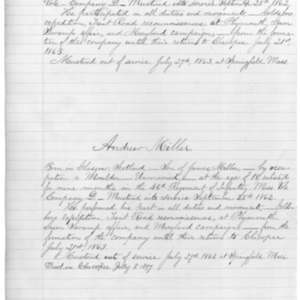 Vols. Company D - Mustered into service Septem'r 25th 1862
He participated in all duties and movements - Goldsboro
expedition, Trent Road reconnoissance, at Plymouth, Gum
Swamp affair, and Maryland campaign - from the forma-
tion of the company until their return to Chicopee July 21st
1863.
Mustered out of service July 29th 1863 at Springfield Mass
Andrew Miller
Born in Glasgow, Scotland - Son of James Miller - by occu-
pation a Moulder - at the age of 18 enlisted
for nine months in the 46th Regiment of Infantry, Mass Vols
Company D - Mustered into Service September 25th 1862
He performed his part in all duties and movements - Golds-
boro expedition, Trent Road reconnoissance, at Plymouth
Gum Swamp affair, and Maryland campaign - from the
formation of the company until their return to Chicopee
July 21st 1863.
Mustered out of service July 29th 1863 at Springfield Mass
Died in Chicopee July